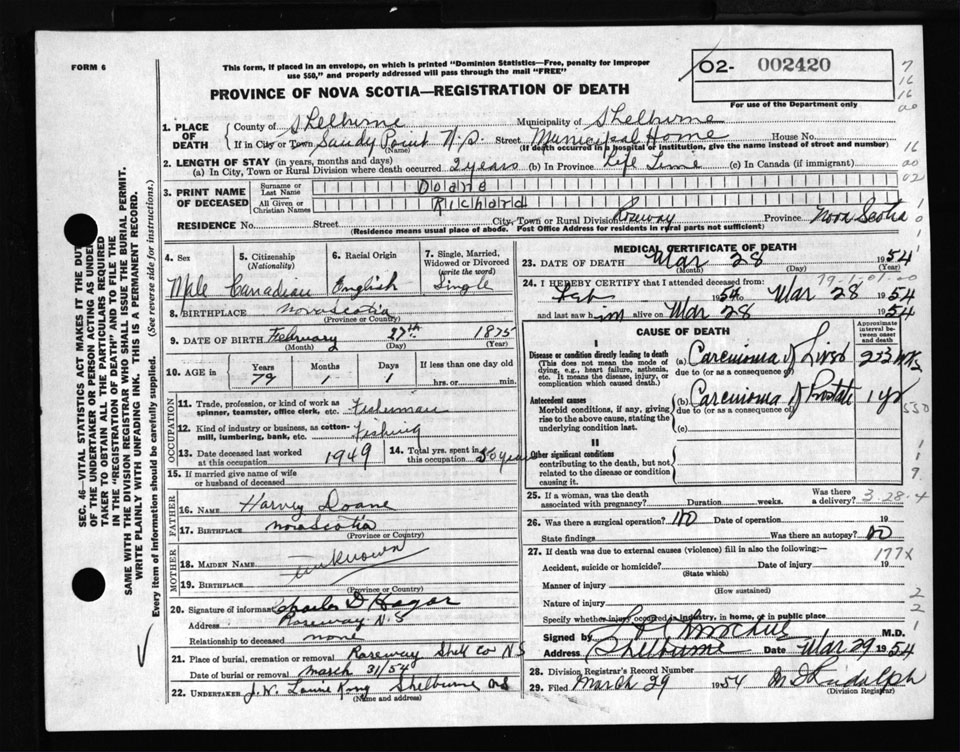 FORM 6
This form, if placed in an envelope, on which is printed "Dominion Statistics—Free, penalty for improper
use $50," and properly addressed will pass through the mail "FREE"
02- 002420
For use of the Department only
PROVINCE OF NOVA SCOTIA—REGISTRATION OF DEATH
1. PLACE OF DEATH
County of Shelburne Municipality of Shelburne
If in City or Town Sandy Point N.S. Street Municipal Home House No.
(Name) (If death occurred in a hospital or institution, give the name instead of street and number)
2. LENGTH OF STAY (in years, months and days)
(a) In City, Town or Rural Division where death occurred 2 years (b) In Province Life Time (c) In Canada (if immigrant)
3. PRINT NAME OF DECEASED
Surname or Last Name Doane
All Given or Christian Names Richard
RESIDENCE No. Street City, Town or Rural Division Roseway Province Nova Scotia
(Residence means usual place of abode. Post Office Address for residents in rural parts not sufficient)
4. Sex Male
5. Citizenship (Nationality) Canadian
6. Racial Origin English
7. Single, Married, Widowed or Divorced (write the word) Single
8. BIRTHPLACE Nova Scotia
(Province or Country)
9. DATE OF BIRTH February 27th 1875
(Month) (Day) (Year)
10. AGE in Years 79 Months 1 Days 1 If less than one day old hrs. or min.
OCCUPATION
11. Trade, profession, or kind of work as spinner, teamster, office clerk, etc. Fisherman
12. Kind of industry or business, as cotton-mill, lumbering, bank, etc. Fishing
13. Date deceased last worked at this occupation 1949
14. Total yrs. spent in this occupation 50 years
15. If married give name of wife or husband of deceased
FATHER
16. NAME Harvey Doane
17. BIRTHPLACE Nova Scotia
(Province or Country)
MOTHER
18. MAIDEN NAME unknown
19. BIRTHPLACE
(Province or Country)
20. Signature of informant Charles D Hagar
Address Roseway N.S
Relationship to deceased none
21. Place of burial, cremation or removal Roseway Shel Co NS
Date of burial or removal March 31/54
22. UNDERTAKER J.W. Shelburne NS
(Name and address)
MEDICAL CERTIFICATE OF DEATH
23. DATE OF DEATH Mar 28 1954
(Month) (Day) (Year)
24. I HEREBY CERTIFY that I attended deceased from:
Feb 1954 to Mar 28 1954
and last saw him alive on Mar 28 1954
CAUSE OF DEATH
Approximate interval between onset and death
I
Disease or condition directly leading to death
(This does not mean the mode of dying, e.g., heart failure, asthenia, etc. It means the disease, injury, or complication which caused death.)
(a) Carcinoma of Liver 2-3 wks
due to (or as a consequence of)
Antecedent causes
Morbid conditions, if any, giving rise to the above cause, stating the underlying condition last.
(b) Carcinoma of Prostate 1 yr
due to (or as a consequence of)
(c)
II
Other significant conditions
contributing to the death, but not related to the disease or condition causing it.
25. If a woman, was the death associated with pregnancy? Duration weeks. Was there a delivery? 3-28-4
26. Was there a surgical operation? No Date of operation 19
State findings Was there an autopsy? No
27. If death was due to external causes (violence) fill in also the following:— 177X
Accident, suicide or homicide? Date of injury 19
(State which)
Manner of injury
(How sustained)
Nature of injury
Specify whether injury occurred in industry, in home, or in public place
Signed by M.D.
Address Shelburne Date Mar 29 1954
28. Division Registrar's Record Number
29. Filed March 29 1954
(Division Registrar)
SEC. 46—VITAL STATISTICS ACT MAKES IT THE DUTY
OF THE UNDERTAKER OR PERSON ACTING AS UNDER-
TAKER TO OBTAIN ALL THE PARTICULARS REQUIRED
IN THE "REGISTRATION OF DEATH" AND TO FILE THE
SAME WITH THE DIVISION REGISTRAR WHO SHALL ISSUE THE BURIAL PERMIT.
WRITE PLAINLY WITH UNFADING INK. THIS IS A PERMANENT RECORD.
Every item of information should be carefully supplied. (See reverse side for instructions.)